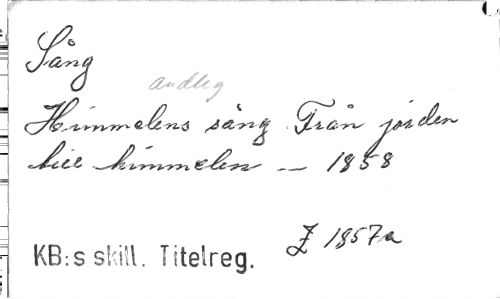 Sång
andlig
Himmelens sång Från jorden
till himmelen — 1858
Z 1857a
KB:s skill. Titelreg.